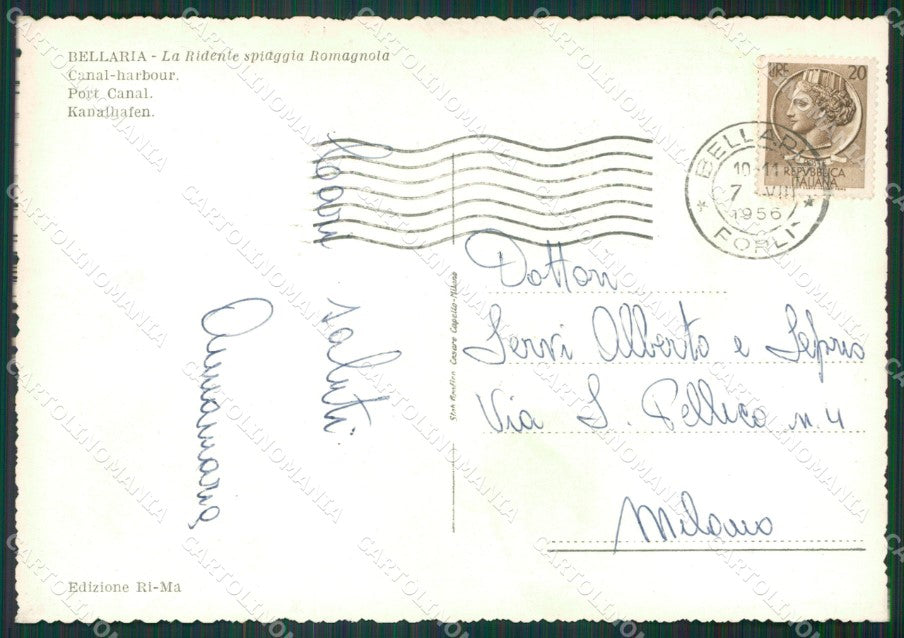 BELLARIA - La Ridente spiaggia Romagnola
Canal-harbour.
Port Canal.
Kanalhafen.
LIRE 20
REPVBBLICA
ITALIANA
BELLARIA
10-11
7 VIII
1956
FORLI
Cari
saluti
Annamaria
Dottori
Servi Alberto e
Via S. Pellico n. 4
Milano
Stab. Cesare Capello-Milano
Edizione Ri-Ma
CARTOLINOMANIA